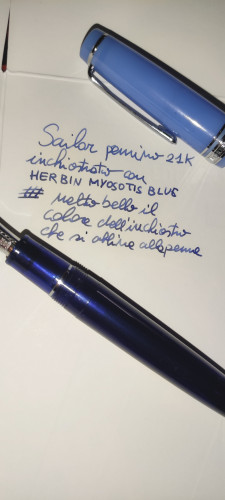 Sailor pennino 21K
inchiostrato con
HERBIN MYOSOTIS BLUE
molto bello il
colore dell'inchiostro
che si affina alla penna